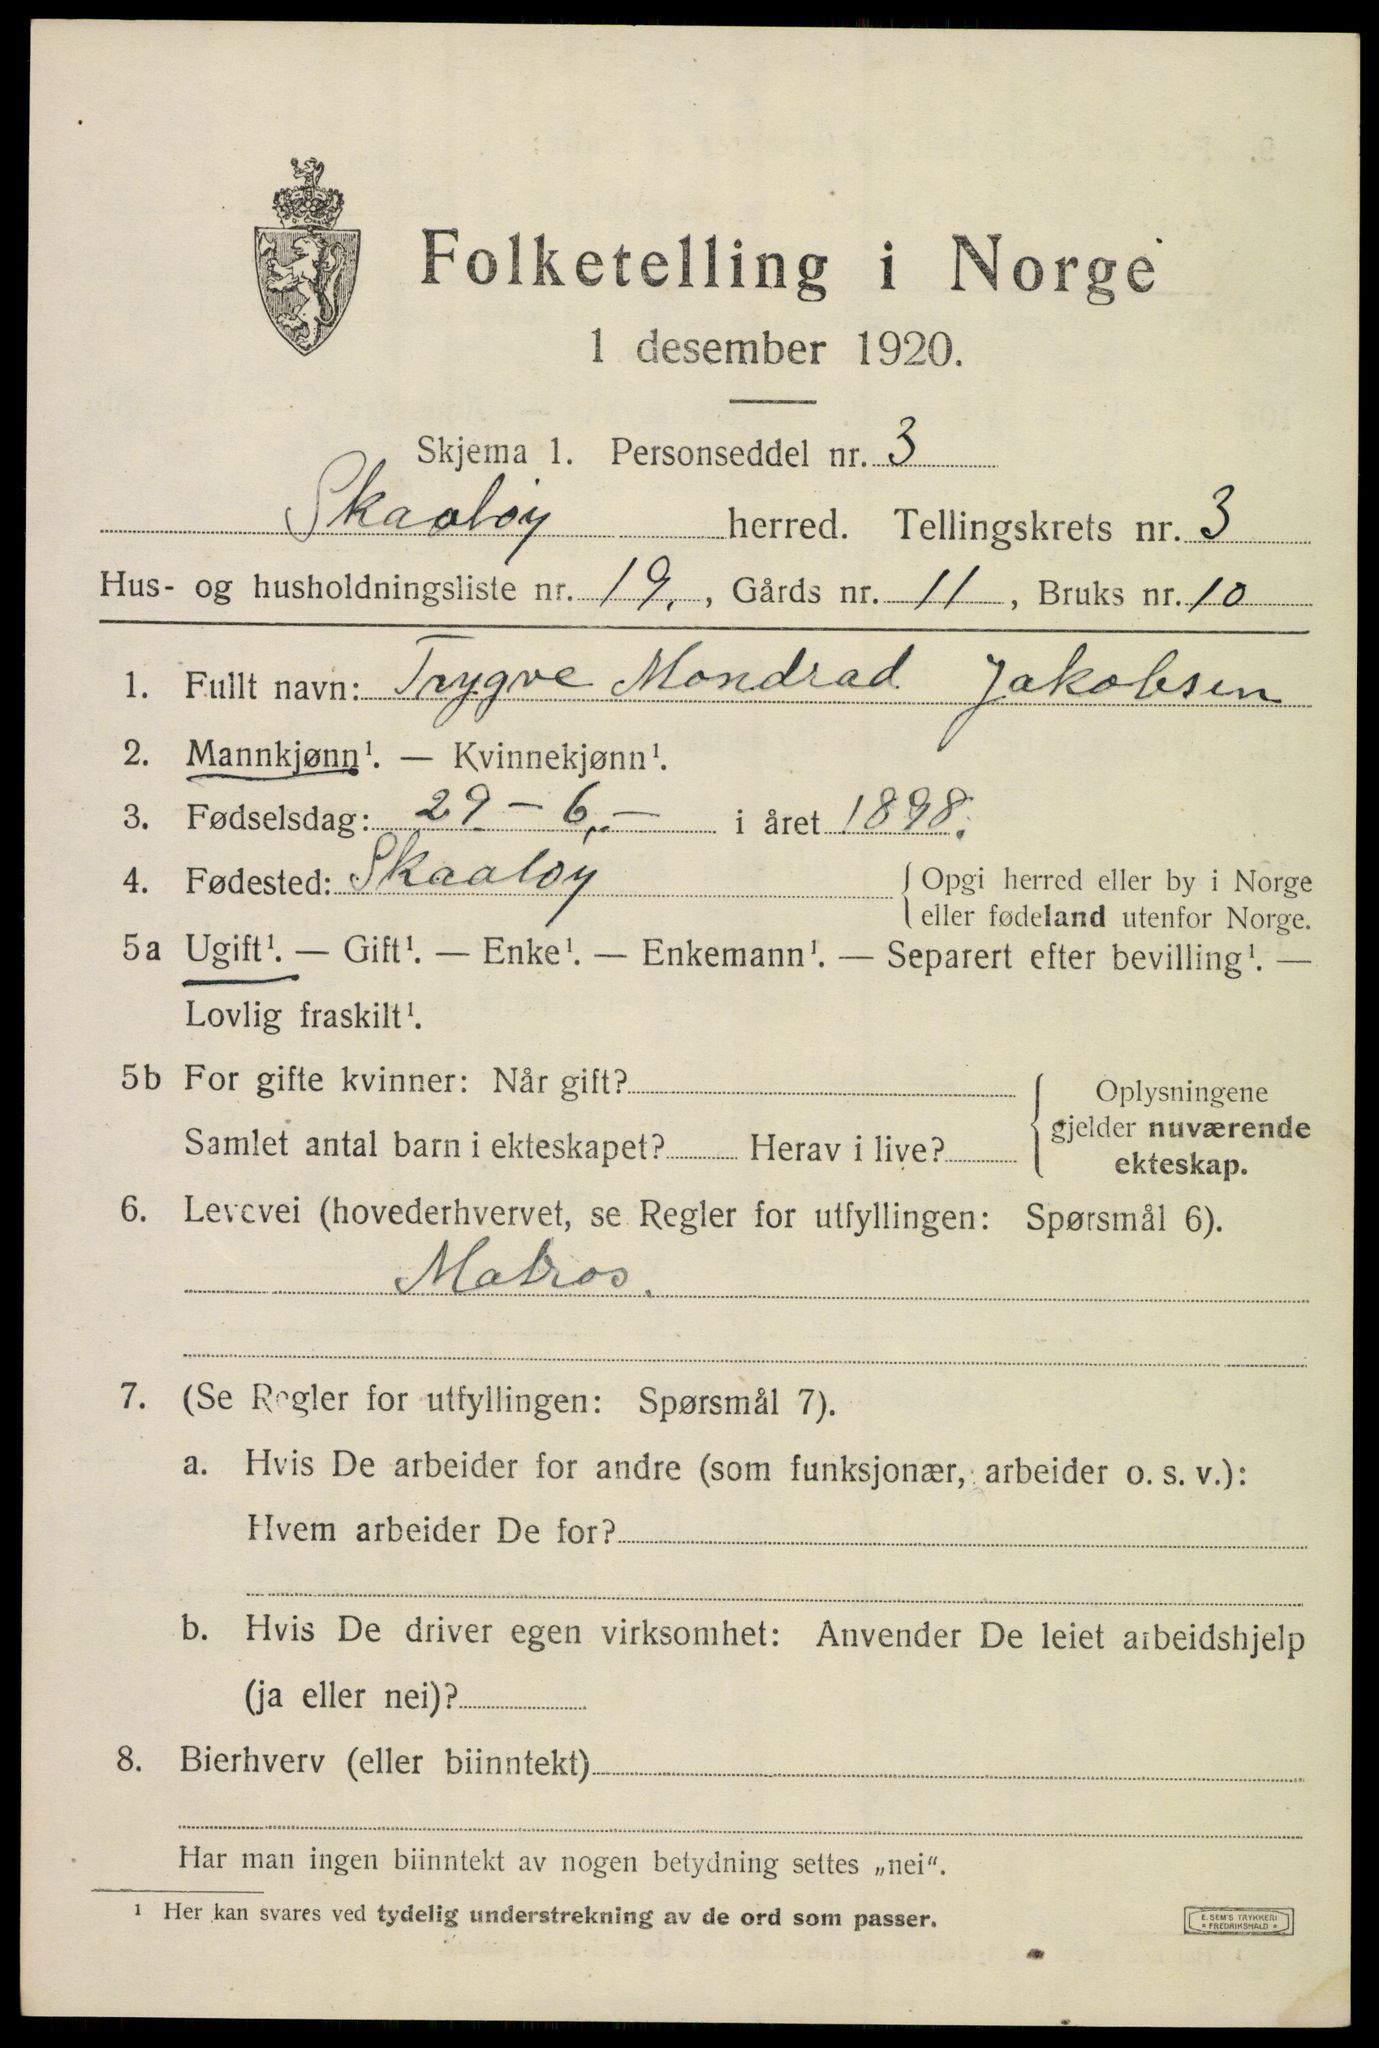 Folketelling i Norge
1 desember 1920.
Skjema 1. Personseddel nr. 3
Skaatøy herred. Tellingskrets nr. 3
Hus- og husholdningsliste nr. 19, Gårds nr. 11, Bruks nr. 10
1. Fullt navn: Trygve Mondrad Jakobsen
2. Mannkjønn¹. — Kvinnekjønn¹.
3. Fødselsdag: 29 - 6. - i året 1898.
4. Fødested: Skaatøy { Opgi herred eller by i Norge
eller fødeland utenfor Norge.
5a Ugift¹. — Gift¹. — Enke¹. — Enkemann¹. — Separert efter bevilling¹. —
Lovlig fraskilt¹.
5b For gifte kvinner: Når gift? { Oplysningene
Samlet antal barn i ekteskapet? Herav i live? gjelder nuværende
ekteskap.
6. Levevei (hovederhvervet, se Regler for utfyllingen: Spørsmål 6).
Matros.
7. (Se Regler for utfyllingen: Spørsmål 7).
a. Hvis De arbeider for andre (som funksjonær, arbeider o. s. v.):
Hvem arbeider De for?
b. Hvis De driver egen virksomhet: Anvender De leiet arbeidshjelp
(ja eller nei)?
8. Bierhverv (eller biinntekt)
Har man ingen biinntekt av nogen betydning settes „nei“.
¹ Her kan svares ved tydelig understrekning av de ord som passer.
E. SEM'S TRYKKERI
* FREDRIKSHALD *